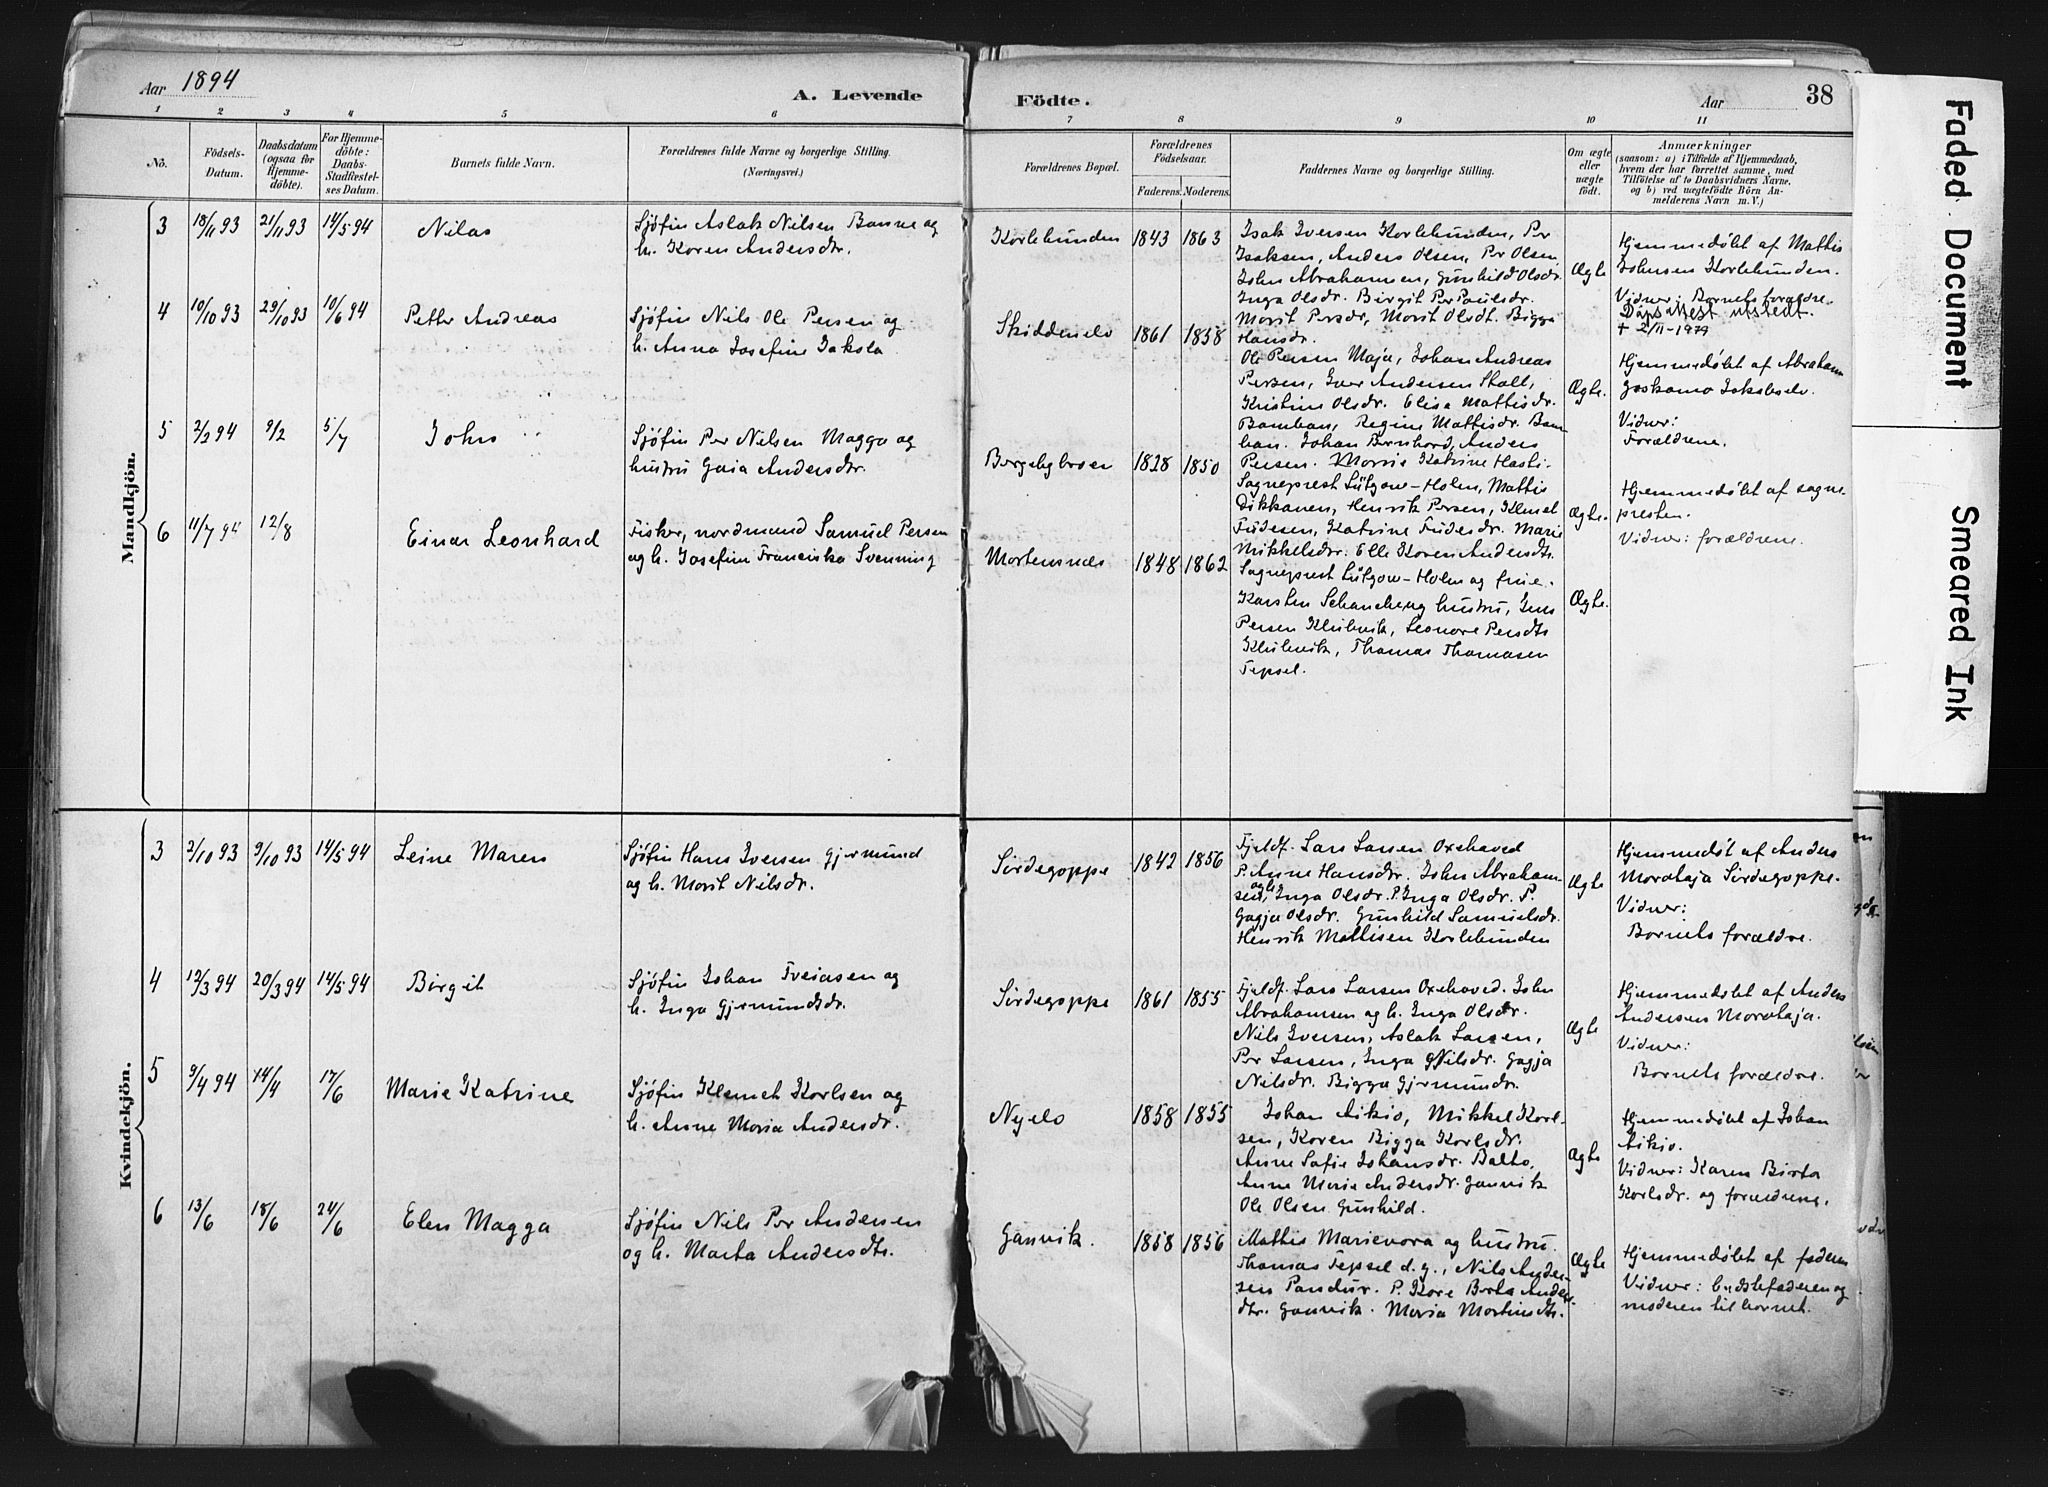 Aar 1894
A. Levende
Födte.
Aar
38
1 2 3 4 5 6 7 8 9 10 11
No.
Födsels-
Datum.
Daabsdatum
(ogsaa for
Hjemme-
döbte).
For Hjemme-
döbte:
Daabs-
Stadfæstel-
ses Datum.
Barnets fulde Navn.
Forældrenes fulde Navne og borgerlige Stilling.
(Næringsvei.)
Forældrenes Bopæl.
Forældrenes
Födselsaar.
Faderens. Moderens.
Faddernes Navne og borgerlige Stilling.
Om ægte
eller
uægte
födt.
Anmærkninger
(saasom: a) i Tilfælde af Hjemmedaab,
hvem der har forrettet samme, med
Tilföielse af to Daabsvidners Navne,
og b) ved uægtefödte Börn An-
melderens Navn m. V.)
Mandkjön.
3 18/11 93 21/11 93 14/5 94 Nilas
Sjøfin Aslak Nilsen Banne og
h. Karen Andersdr.
Korlebunden 1843 1863
Isak Iversen Korlebunden, Per
Isaksen, Anders Olsen, Per Olsen,
John Abrahamsen, Gunhild Olsdr.
Inga Olsdr. Birgit Per Paulsdr.
Marit Persdr, Marit Olsdt. Bigga
Hansdr.
Ægte
Hjemmedøbt af Mattis
Johnsen Korlebunden.
Vidner: Barnets forældre.
Dåpsattest utstedt.
+ 2/11-1979
4 10/10 93 29/10 93 10/6 94 Petter Andreas
Sjøfin Nils Ole Persen og
h. Anna Josefine Jakola
Skiddenelv 1861 1858
Ole Persen Maja, Johan Andreas
Persen, Iver Andersen Skall,
Kristine Olsdr. Elisa Mattisdr.
Bamban, Regine Mattisdr. Bam-
ban. Johan Bernhard, Anders
Persen. Maria Katrine Hasti-
Ægte.
Hjemmedøbt af Abraham
Jakobselv.
Vidner:
Forældrene.
5 2/2 94 9/2 5/7 John
Sjøfin Per Nilsen Magga og
hustru Gaia Andersdtr.
Bergebybroen 1828 1850
Sogneprest Lützow-Holm, Mattis
Dikkanen, Henrik Persen, Klemet
Fudesen, Katrine Fudesdr. Marie
Mikkelsdtr. Elle Karen Andersdtr.
Ægte.
Hjemmedøbt af sogne-
presten.
Vidner: forældrene.
6 11/7 94 12/8 Einar Leonhard
Fisker, nordmand Samuel Persen
og h. Josefine Franciska Svenning
Mortensnæs 1848 1862
Sogneprest Lützow-Holm og frue.
Karsten Schanche og hustru, Jens
Persen Klubvik, Leonore Persdtr
Klubvik, Thomas Thomasen
Tepsel.
Ægte.
Kvindekjön.
3 2/10 93 9/10 93 14/5 94 Leine Maren
Sjøfin Hans Iversen Gjermund
og h. Marit Nilsdr.
Sirdagoppe 1842 1856
Fjeldf. Lars Larsen Oxehoved
P. Anne Hansdtr. John Abraham-
sen, og h. Inga Olsdr. P. Inga Olsdr. P.
Gagja Olsdr. Gunhild Samuelsdr.
Henrik Mattisen Korlebunden
Ægte
Hjemmedøt af Anders
Morotaja Sirdagoppe.
Vidner:
Barnets forældre.
4 12/3 94 20/3 94 14/5 94 Birgit
Sjøfin Johan Iveiasen og
h. Inga Gjermundsdr.
Sirdagoppe 1861 1855
Fjeldf. Lars Larsen Oxehoved. John
Abrahamsen og h. Inga Olsdr.
Nils Iversen, Aslak Larsen,
Per Larsen, Inga Nilsdr. Gagja
Nilsdr. Bigga Gjermundr.
Ægte
Hjemmedøbt af Anders
Andersen Morotaja.
Vidner:
Barnets forældre.
5 9/4 94 14/4 17/6 Marie Katrine
Sjøfin Klemet Karlsen og
h. Anne Maria Andersdr.
Nyelv 1858 1855
Johan Aikio, Mikkel Karl-
sen, Karen Bigga Karlsdr.
Anne Sofie Johansdr. Balto,
Anne Marie Andersdr. Ganvik
Ole Olsen Gunhild.
Ægte
Hjemmedøbt af Johan
Aikio.
Vidner: Karen Birta
Karlsdr. og forældrene.
6 13/6 18/6 24/6 Elen Magga
Sjøfin Nils Per Andersen
og h. Marta Andersdtr.
Ganvik. 1858 1856
Mathis Marievara og hustru.
Thomas Tepsel d.y., Nils Ander-
sen Pandur. P. Kare Berta Anders-
dtr. Ganvik. Maria Martinsdtr.
Ægte
Hjemmedøbt af faderen
Vidner: bedstefaderen og
moderen til barnet.
Faded Document
Smeared Ink